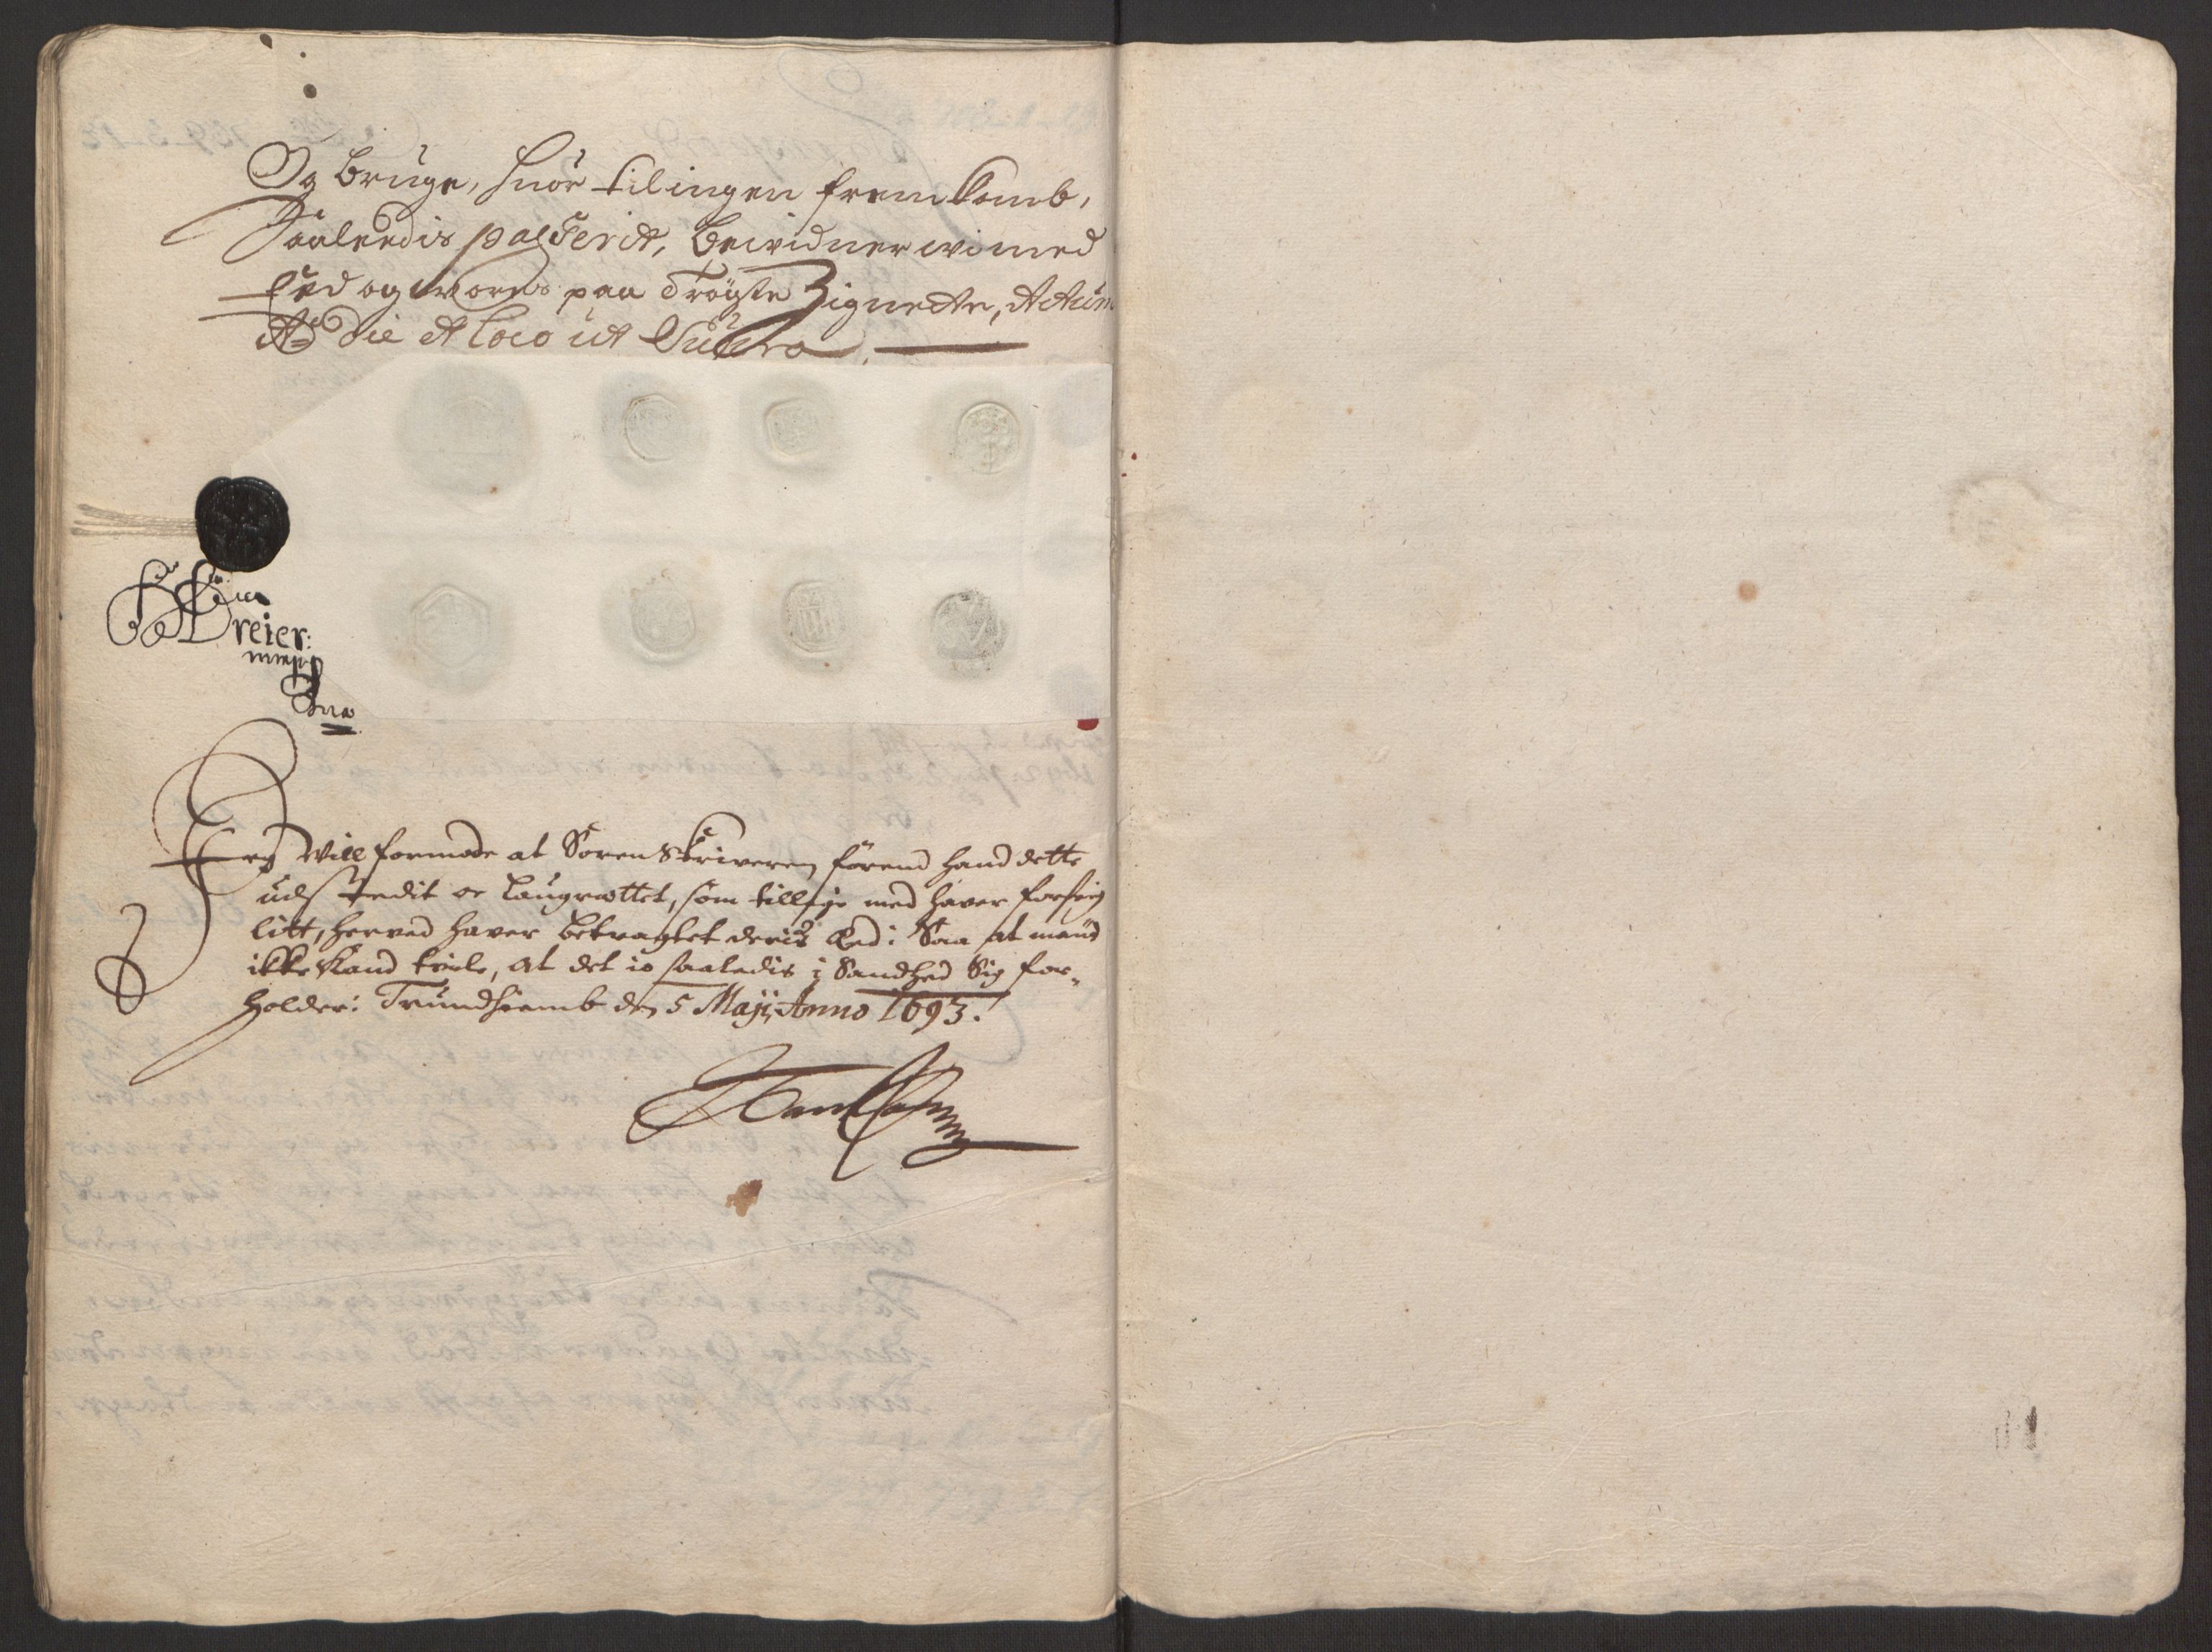 Og bruge, huor til ingen frem komb,
Saaleedis passerit, bevidner wi med
Hænd og woris paa trögte Zignetter, Actum
Ao die et loco ut Supra.
Dreier:
mmpp
Jeg Will formode at Soren Skriveren förend hand dette
udstædit oc Laugrættet, som tillige med haver forseig
litt, herved haver betragtet deris Eed: Saa at mand
ikke kand tvile, at det io saaledis i Sandhed Sig for-
holder: Trundhiemb den 5 Maji Anno 1693.